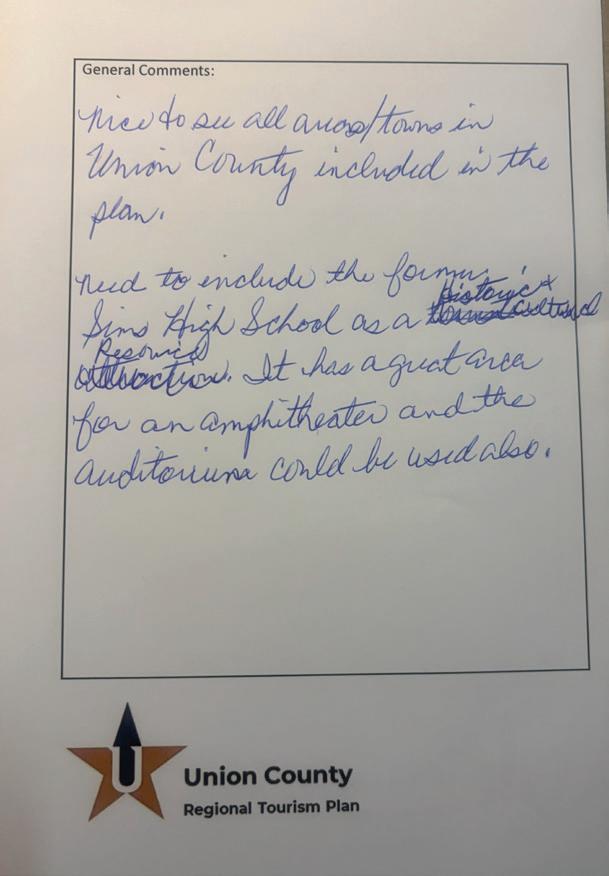 General Comments:
Nice to see all areas/towns in
Union County included in the
plan.
Need to include the former
Historic &
Sims High School as a tourist Cultural
Resource
attraction. It has a great area
for an amphitheater and the
auditorium could be used also.
U
Union County
Regional Tourism Plan